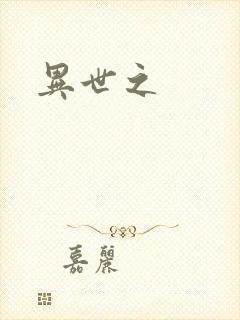 異世之
嘉麗